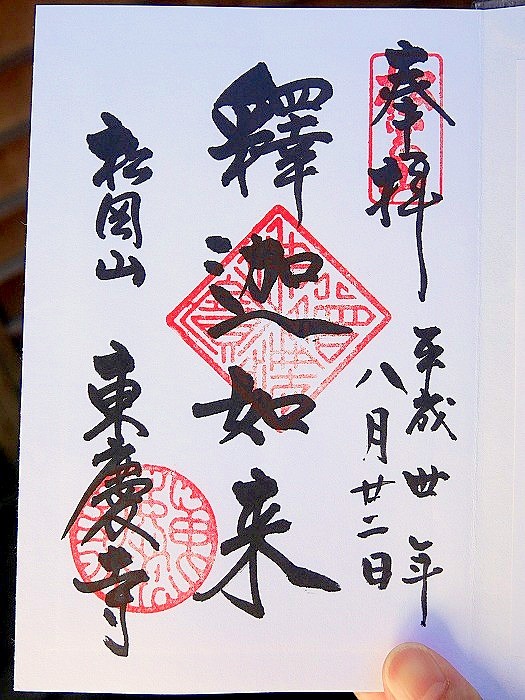 奉拝
平成卅年
八月廿二日
釋迦如来
松岡山
東慶寺